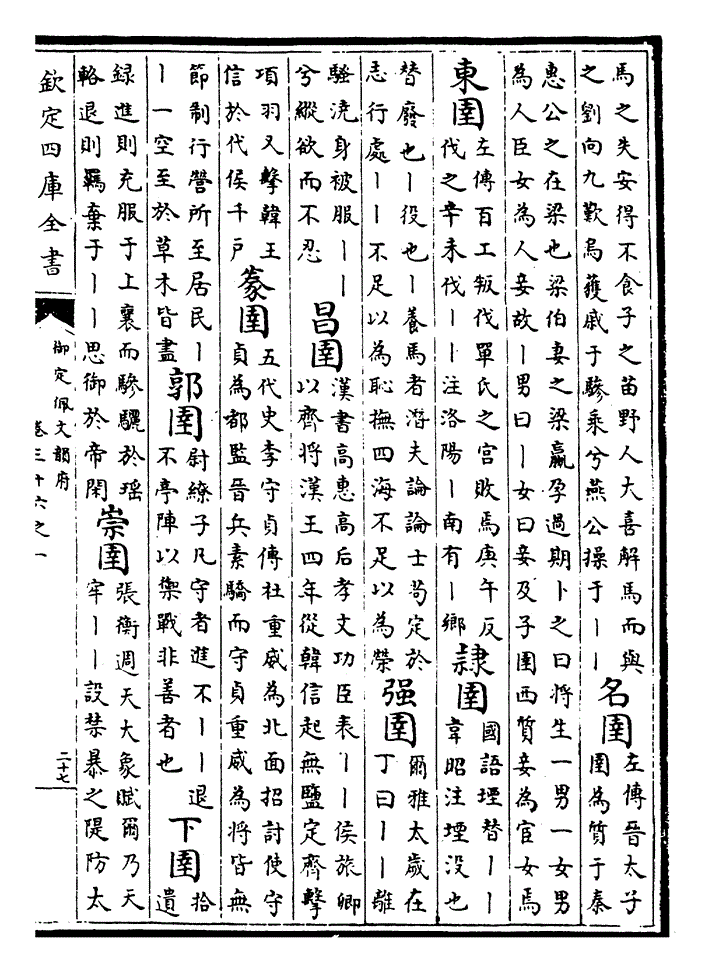 馬之失安得不食子之苗野人大喜解馬而與
之劉向九歎烏獲戚于驂乘兮燕公操于丨丨
名圉
左傳晉太子
圉為質于秦
惠公之在梁也梁伯妻之梁嬴孕過期卜之曰將生一男一女男
為人臣女為人妾故丨男曰丨女曰妾及子圉西質妾為宦女焉
東圉
左傳百工叛伐單氏之宫敗焉庚午反
伐之辛未伐丨丨注洛陽丨南有丨鄉
隷圉
國語堙替丨丨
韋昭注堙没也
替廢也丨役也丨養馬者潛夫論論士苟定於
志行處丨丨不足以為恥撫四海不足以為榮
强圉
爾雅太歲在
丁曰丨丨離
騷澆身被服丨丨
兮縱欲而不忍
昌圉
漢書高惠高后孝文功臣表丨丨侯旅卿
以齊將漢王四年從韓信起無鹽定齊擊
項羽又擊韓王
信於代侯千户
篆圉
五代史李守貞傳杜重威為北面招討使守
貞為都監晉兵素驕而守貞重威為將皆無
節制行營所至居民丨
丨一空至於草木皆盡
郭圉
尉繚子凡守者進不丨丨退
不亭陣以禦戰非善者也
下圉
拾
遺
録進則充服于上襄而驂驪於瑶
輅退則羈棄于丨丨思御於帝閑
崇圉
張衡週天大象賦爾乃天
牢丨丨設禁暴之隄防太
欽定四庫全書
御定佩文韻府
卷三十六之一
二十七